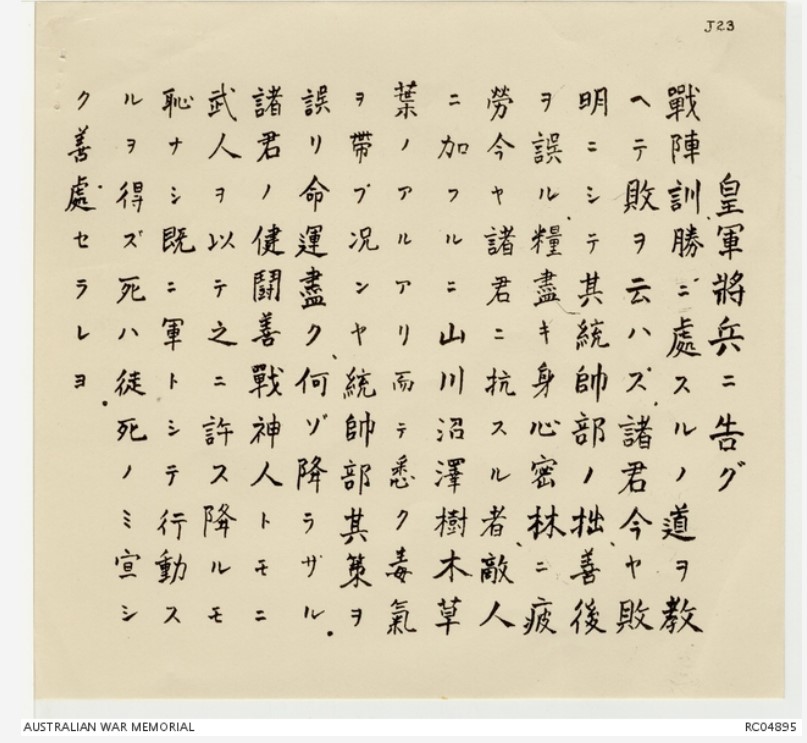 J23
皇軍將兵ニ告グ
戰陣訓、勝ニ處スルノ道ヲ教
ヘテ敗ヲ云ハズ、諸君今ヤ敗
明ニシテ其統帥部ノ拙、善後
ヲ誤ル、糧盡キ身心密林ニ疲
勞今ヤ諸君ニ抗スル者、敵人
ニ加フルニ山川沼澤樹木草
葉ノアルアリ而テ悉ク毒氣
ヲ帶ブ况ンヤ統帥部其策ヲ
誤リ命運盡ク、何ゾ降ラザル。
諸君ノ健鬪善戰神人トモニ
武人ヲ以テ之ニ許ス降ルモ
恥ナシ既ニ軍トシテ行動ス
ルヲ得ズ死ハ徒死ノミ宣シ
ク善處セラレヨ。
AUSTRALIAN WAR MEMORIAL
RC04895